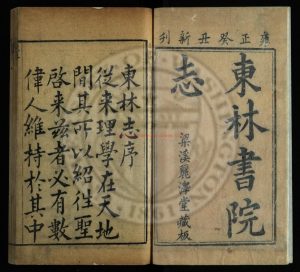 雍正癸丑新刊
東林書院
志
梁溪麗澤堂藏板
東林志序
從来理學在天地
間其可以紹往聖
啓来兹者必有數
偉人維持於其中